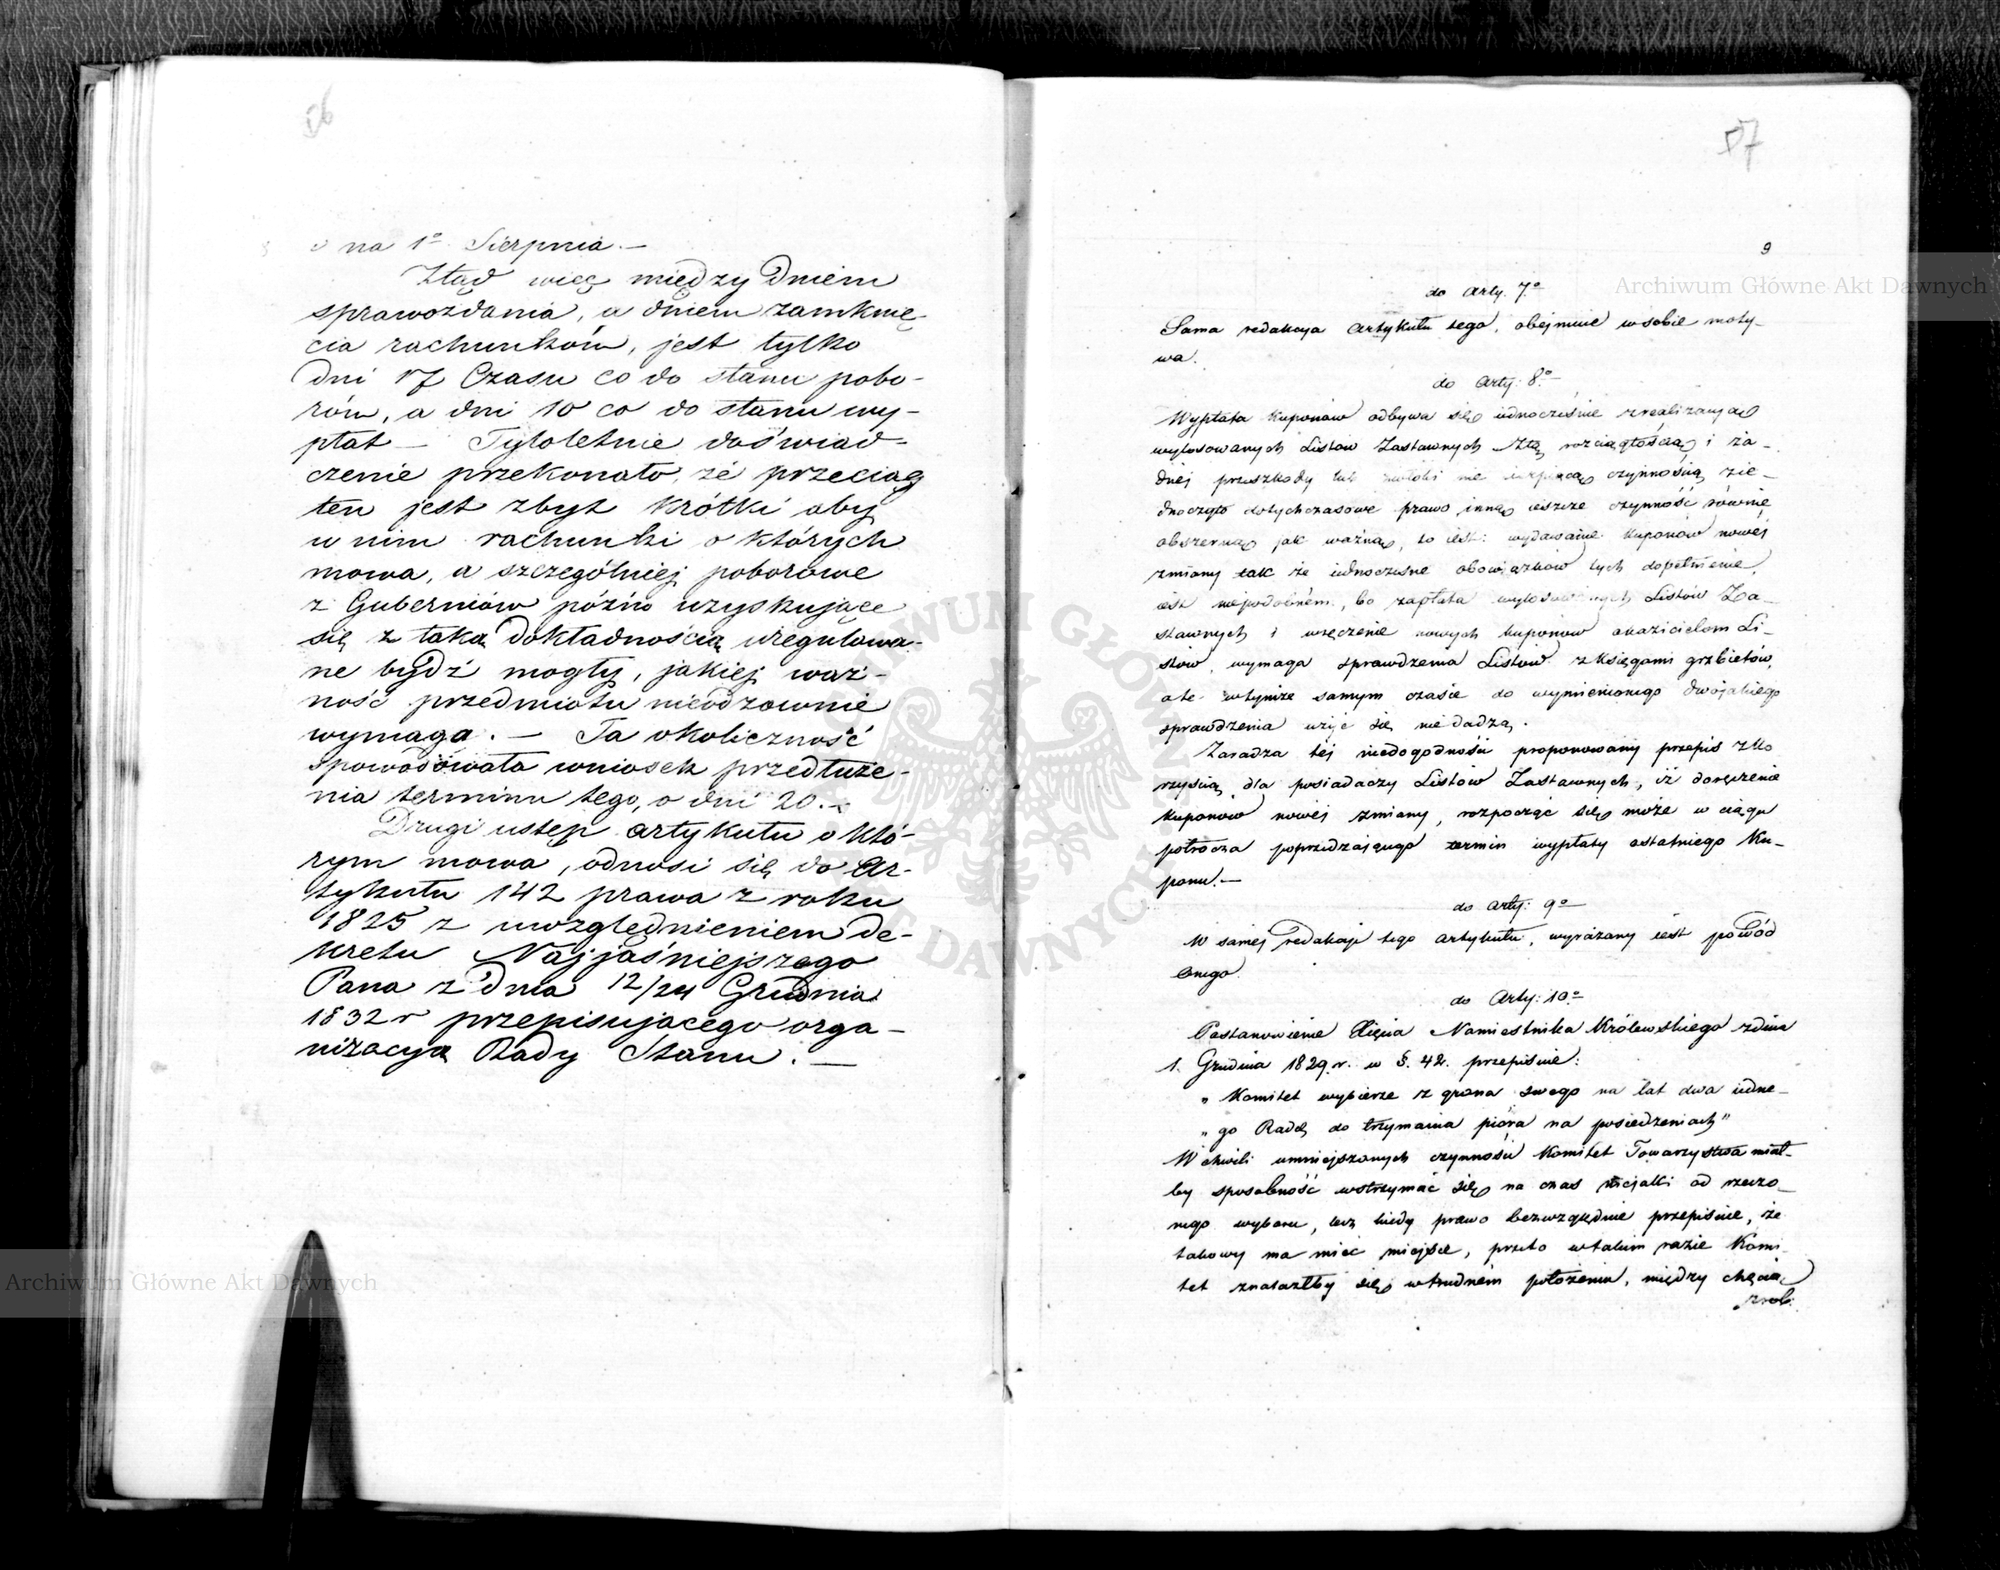 56
na 1º Sierpnia. —
Ztąd więc między Dniem
sprawozdania, a dniem zamknię-
cia rachunków, jest tylko
dni 17 Czasu co do stanu pobo-
rów, a dni 10 co do stanu wy-
płat — Tyloletnie doświad-
czenie przekonało, że przeciąg
ten jest zbyt krótki aby
w nim rachunki o których
mowa, a szczególniej poborowe
z Guberniów późno uzyskujące
się z taką dokładnością uregulowa-
ne bydź mogły, jakiej waż-
ność przedmiotu nieodzownie
wymaga. — Ta okoliczność
spowodowała wniosek przedłuże-
nia terminu tego, o dni 20. —
Drugi ustęp artykułu o któ-
rym mowa, odnosi się do Ar-
tykułu 142 prawa z roku
1825 z uwzględnieniem de-
kretu Najjaśniejszego
Pana z dnia 12/24 Grudnia
1832 r przepisującego orga-
nizacyą Rady Stanu. —
57
9
do arty. 7º
Sama redakcya artykułu tego, obejmuie w sobie moty-
wa.
do arty: 8º
Wypłata kuponów odbywa się iednocześnie z realizacyą
wylosowanych Listów Zastawnych Ztą rozciągłością i ża-
dnej przeszkody lub zwłoki nie cierpiącą czynnością zie-
dnoczyło dotychczasowe prawo inną ieszcze czynność równie
obszerną jak ważną, to iest: wydawanie kuponów nowéj
zmiany tak że iednoczesne obowiązków tych dopełnienie,
iest niepodobném, bo zapłata wylosowanych Listów Za-
stawnych i wręczenie nowych kuponów okazicielom Li-
stów, wymaga sprawdzenia Listów z księgami grzbietów,
ale w tymże samym czasie do wymienionego dwojakiego
sprawdzenia użyć się nie dadzą.
Zaradza téj niedogodności proponowany przepis z ko
rzyścią dla posiadaczy Listów Zastawnych, iż doręczenie
kuponów nowéj zmiany, rozpocząć się może w ciągu
półrocza poprzedzającego termin wypłaty ostatniego Ku-
ponu. —
do arty: 9º
W saméj redakcyi tego artykułu, wyrażany iest powód
onego.
do Arty: 10º
Postanowienie Xięcia Namiestnika Królewskiego z dnia
1. Grudnia 1829. r. w §. 42. przepisuie:
„ Komitet wybierze z grona swego na lat dwa iedne-
„ go Radcę do trzymania pióra na posiedzeniach"
W chwili umniejszonych czynności Komitet Towarzystwa miał-
by sposobność wstrzymać się na czas niejaki od rzeczo-
nego wyboru, lecz kiedy prawo bezwzględnie przepisuie, że
takowy ma mieć miejsce, przeto w takim razie Komi-
tet znalazłby się w trudném położeniu, między chęcią
zrob:
Archiwum Główne Akt Dawnych
Archiwum Główne Akt Dawnych
ARCHIWUM GŁÓWNE AKT DAWNYCH